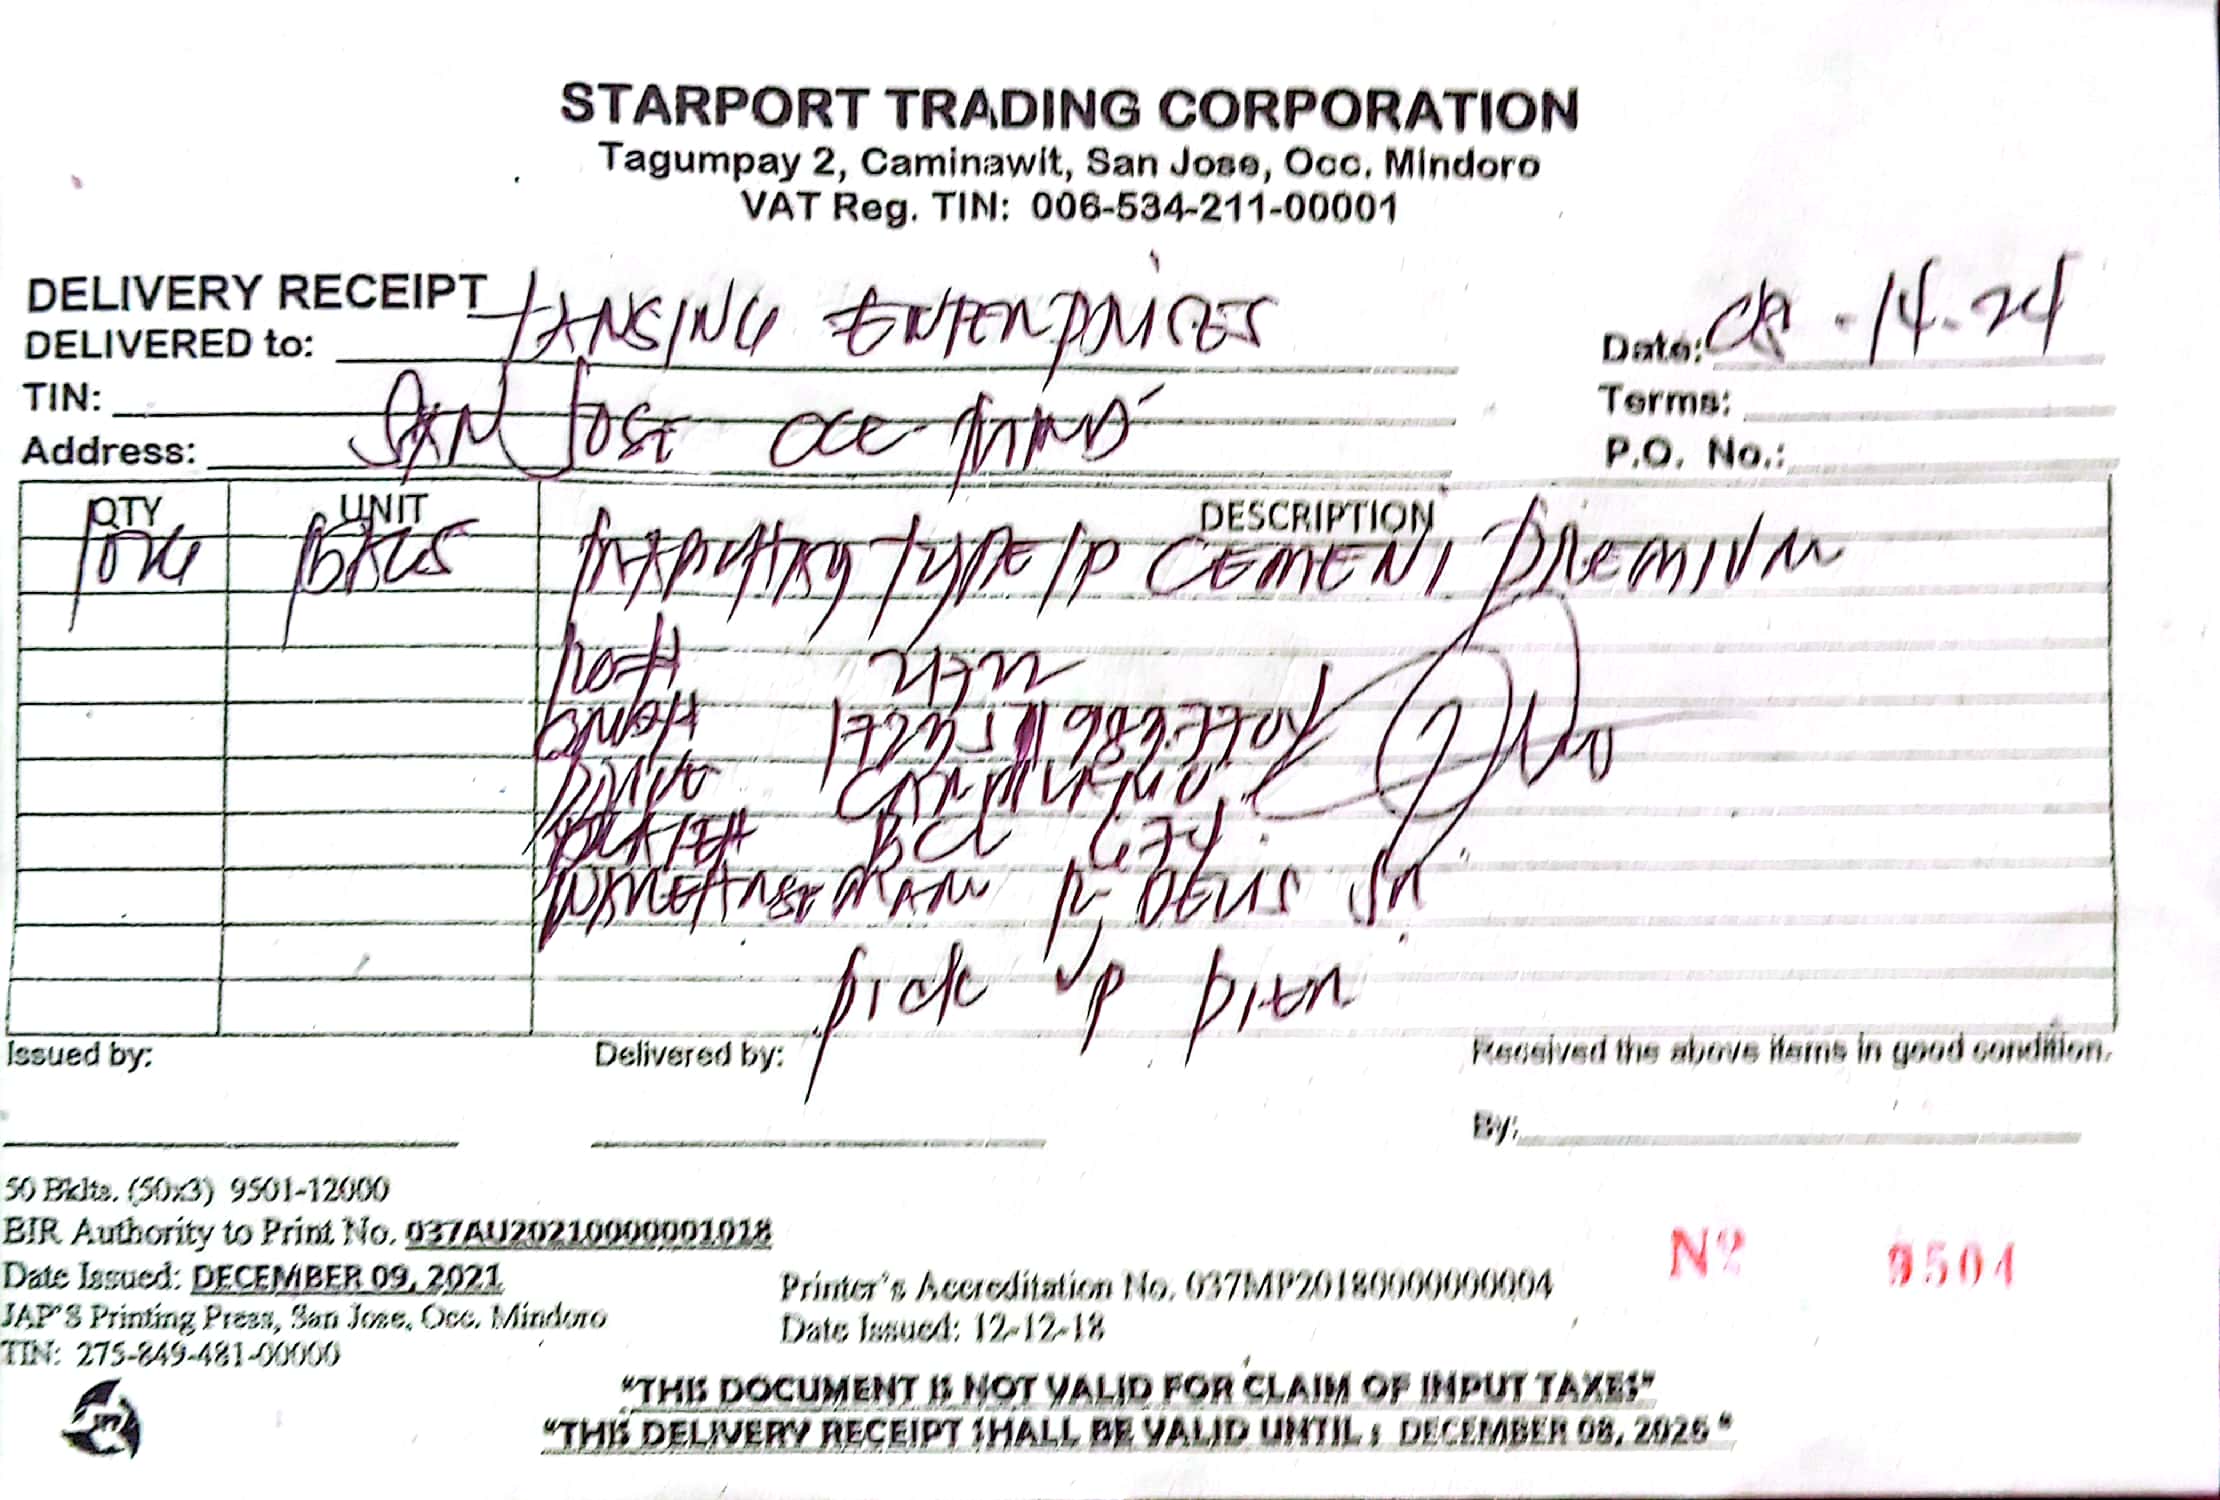 STARPORT TRADING CORPORATION
Tagumpay 2, Caminawit, San Jose, Occ. Mindoro
VAT Reg. TIN: 006-534-211-00001
DELIVERY RECEIPT
DELIVERED to: TANSING ENTERPRISES
Date: 08-14-24
TIN:
Terms:
Address: SAN JOSE OCC MIND
P.O. No.:
QTY UNIT DESCRIPTION
BAGS TYPE 1P CEMENT PREMIUM
BCL
SR
pick up
Issued by: Delivered by: Received the above items in good condition.
By:
50 Bklts. (50x3) 9501-12000
BIR Authority to Print No. 037AU20210000001018
Date Issued: DECEMBER 09, 2021
JAP'S Printing Press, San Jose, Occ. Mindoro
TIN: 275-849-481-00000
Printer's Accreditation No. 037MP20180000000004
Date Issued: 12-12-18
Nº 9504
"THIS DOCUMENT IS NOT VALID FOR CLAIM OF INPUT TAXES"
"THIS DELIVERY RECEIPT SHALL BE VALID UNTIL : DECEMBER 08, 2026"